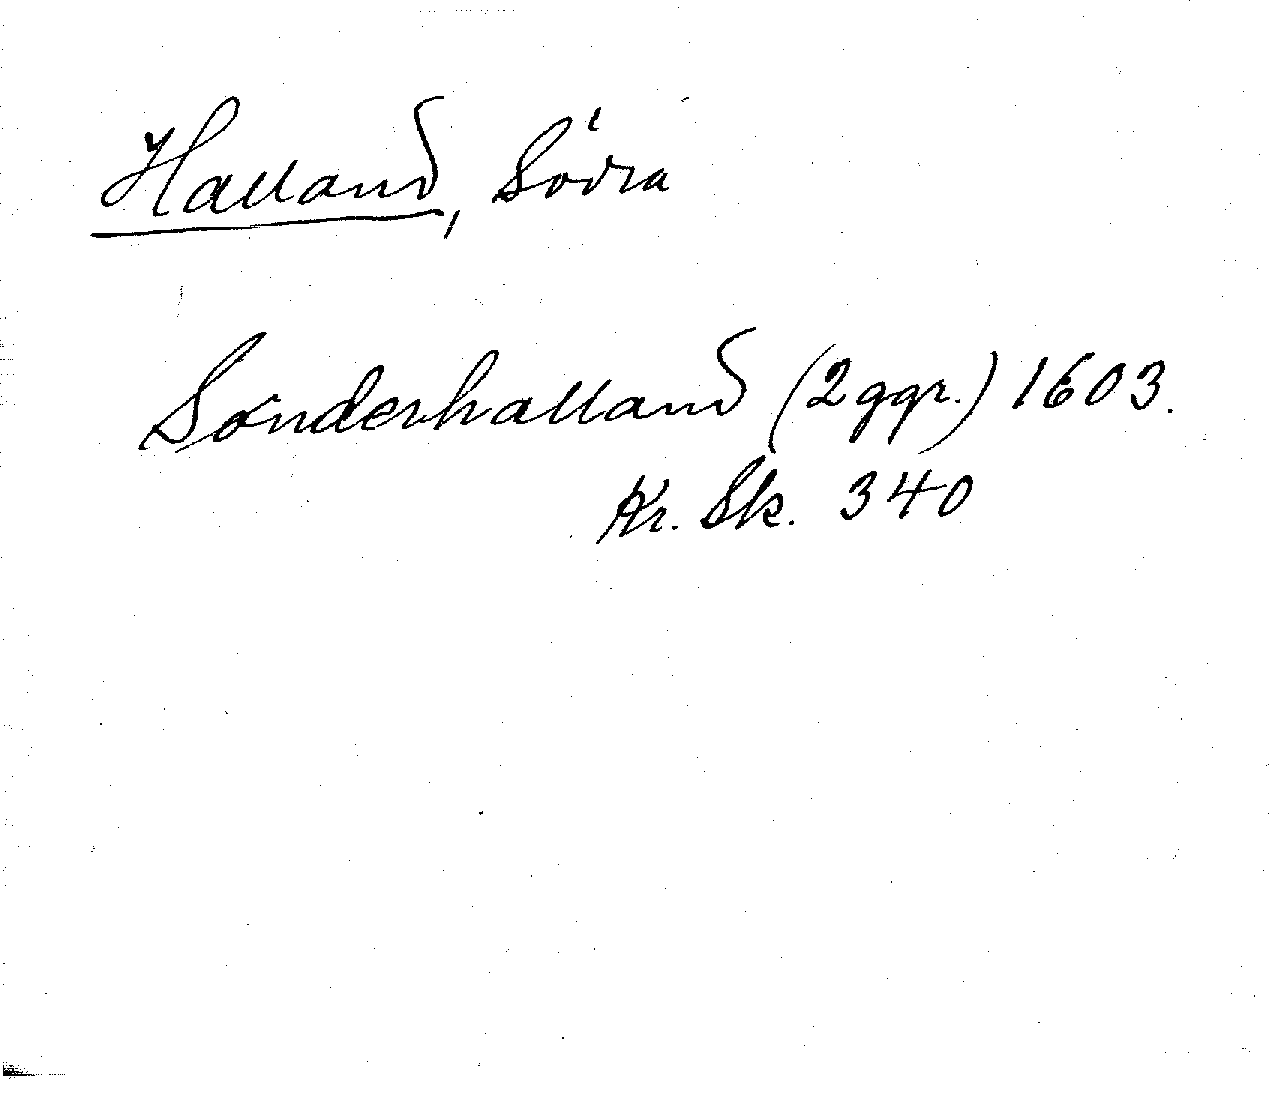 Halland, Södra
Sönderhalland (2 ggr.) 1603.
Kr. Sk. 340